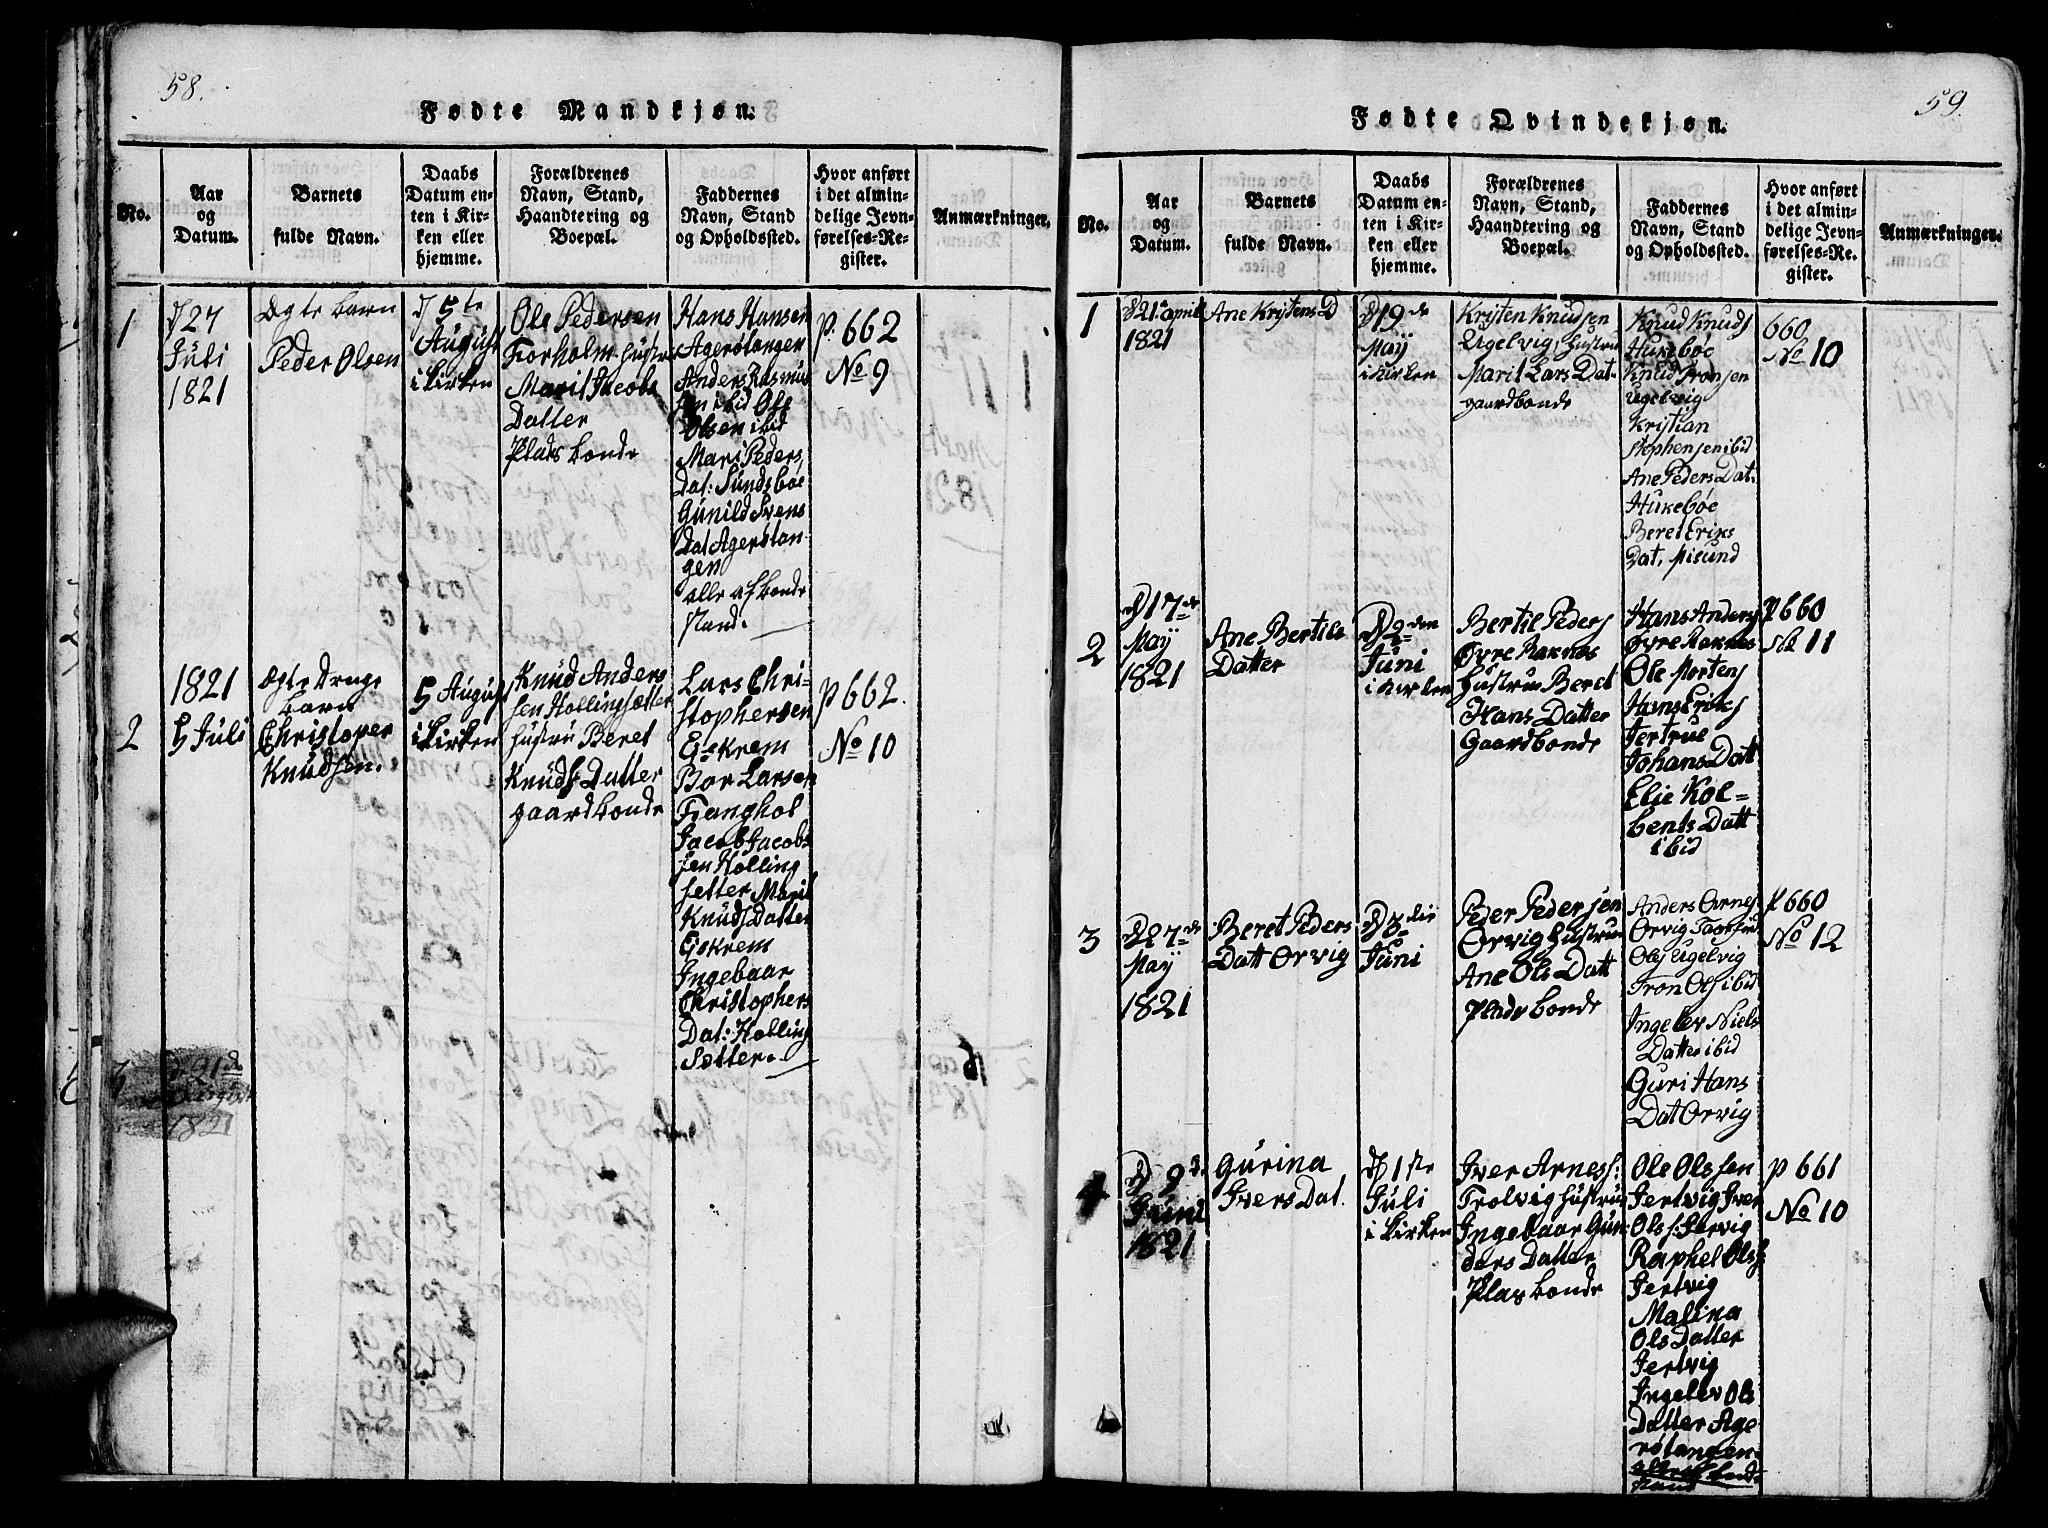 58.
Fødte Mandkjøn.
No.
Aar
og
Datum.
Barnets
fulde Navn.
Daabs
Datum en-
ten i Kir-
ken eller
hjemme.
Forældrenes
Navn, Stand,
Haandtering og
Boepæl.
Faddernes
Navn, Stand
og Opholdssted.
Hvor anført
i det almin-
delige Jevn-
førelses-Re-
gister.
Anmærkninger.
1
D 27
Juli
1821
Ægte barn
Peder Olsen
D 5te
August
i Kirken
Ole Pedersen
Forholm Hustru
Marit Jacobs
Datter
Plads bonde
Hans Hansen
Agerøtangen
Anders Rasmus
sen ibid Ole
Olsen ibid
Mari Peders
Dat: Sundsbøe
Gunild Svens
Dat Agerøtan-
gen
alle af bonde
stand.
p. 662
No 9
2
1821
5 Juli
Ægte Drenge
barn
Christoper
Knudsen.
5 August
i kirken
Knud Anders
sen Hollingsætter
Hustru Beret
Knuds Datter
gaardbonde
Lars Chri-
stophersen
Eskrem
Bor Larsen
Franghol
Jacob Jacobs
sen Holling
setter Marit
Knuds Datter
Eskrem
Ingebaar
Christophers
Dat: Holling
Sætter.
p 662.
No 10
3
1821
59.
Fødte Qvindekjøn.
No.
Aar
og
Datum.
Barnets
fulde Navn.
Daabs
Datum en-
ten i Kir-
ken eller
hjemme.
Forældrenes
Navn, Stand,
Haandtering og
Boepæl.
Faddernes
Navn, Stand
og Opholdssted.
Hvor anført
i det almin-
delige Jevn-
førelses-Re-
gister.
Anmærkninger.
1
D 21 april
1821
Ane Kristens D
D 19de
May
i kirken
Kristen Knudsen
Ugelvig, Hustru
Marit Lars Dat-
gaardbonde
Knud Knuds
Hukebøe
Knud Tronsen
Ugelvig
Kristian
Stephensen ibid
Ane Peders Dat.
Hukebøe
Beret Eriks
Dat, Misund
660
No 10
2
D 17de
May
1821
Ane Bertils
Datter
Juni
i kirken
Bertil Peders
Øvre Raknes
Hustrue Beret
Hans Datter
Gaardbonde
Hans Anders
Øvre Raknes
Ole Mortens
Hans Eriks
Jertrue
Johans Datt
Elie Kol-
bents Datt
ibid
P 660
No 11
3
D 27de
May
1821
Beret Peders
Datt Orvig
Juni
Peder Pedersen
Orvig Hustrue
Ane Ols Datt
Plads bonde
Anders Arnes
Orvig
Ols Ugelvig
Tron Ols ibid
Ingeler Niels
Datter ibid
Guri Hans
Dat Orvig
P 660
No 12
4
Juni
1821
Gurina
Ivers Dat.
D 1ste
Juli
i kirken
Iver Arness:
Trolvig Hustrue
Ingebaar Gun-
ders Datter
Plas bonde
Ole Olssen
Jertvig Iver
Ols: Jervig
Raphel Ols
Jertvig
Malina
Ols Datter
Jertvig
Ingeler Ols
Datter Age
røtangen
p 661
No 10